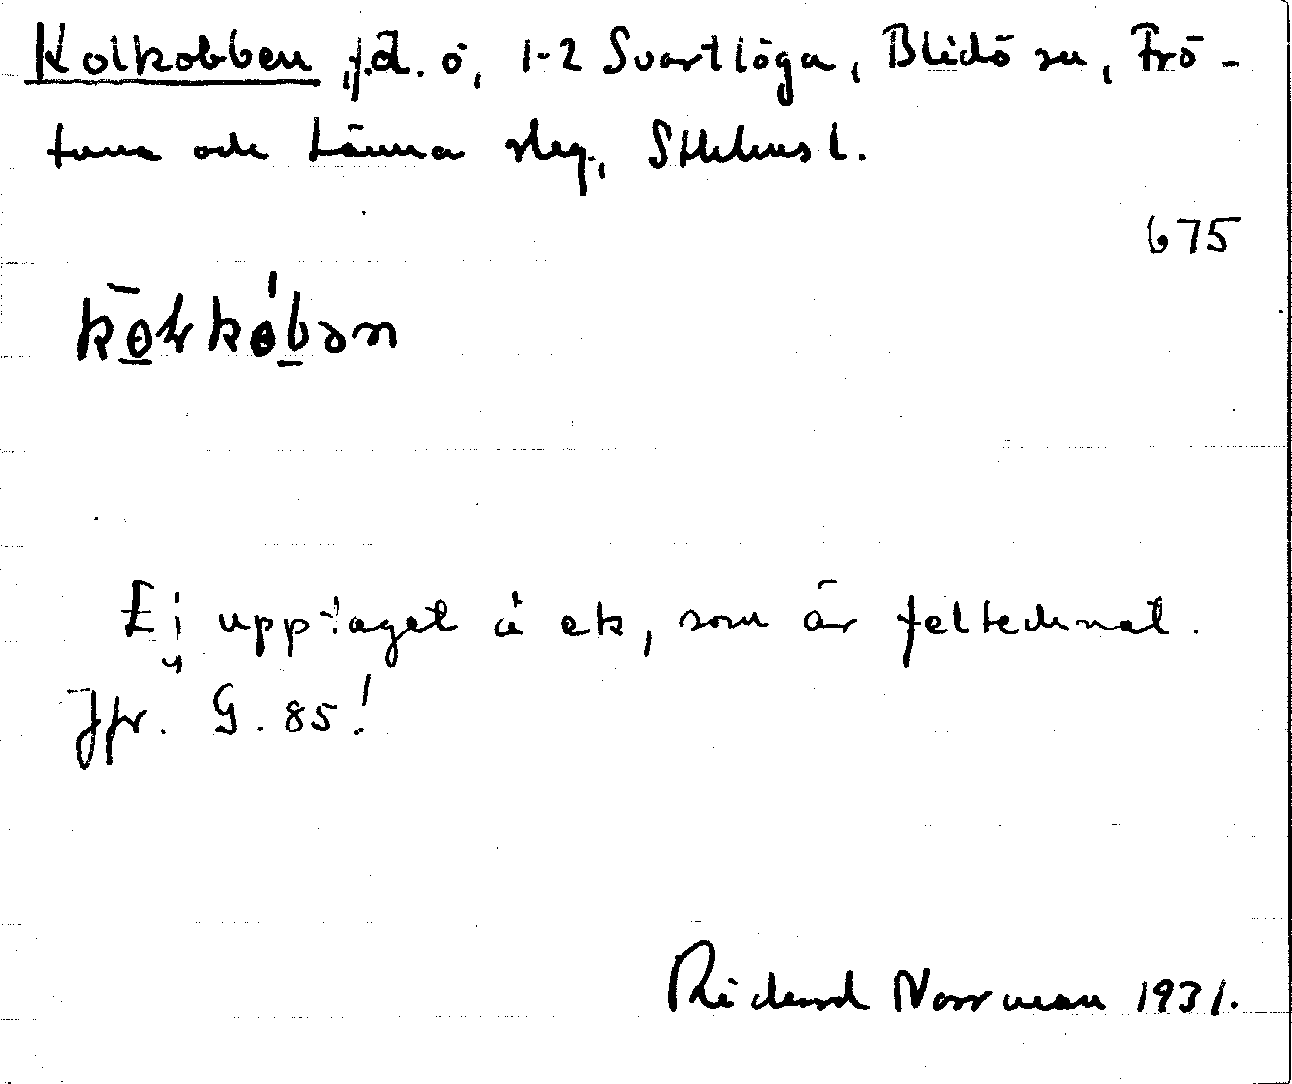 Kolkobben, f.d. ö, 1-2 Svartlöga, Blidö sn, Frö-
tuna och Länna skg, Sthlms l.
675
Ej upptaget å ek, som är feltecknat.
Jfr. G. 85!
Rickard Norrman 1931.